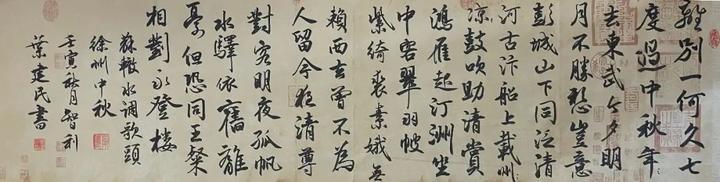 離別一何久七
度過中秋年
去東武今夕明
月不勝愁豈意
彭城山下同泛清
河古汴船上載州
涼鼓吹助清賞
鴻雁起汀洲坐
中客翠羽帔
紫綺裘素娥無
賴西去曾不為
人留今夜清尊
對客明夜孤帆
水驛依舊離
憂但恐同王粲
相對永登樓
蘇轍水調歌頭
徐州中秋
壬寅秋月智利
葉建民書